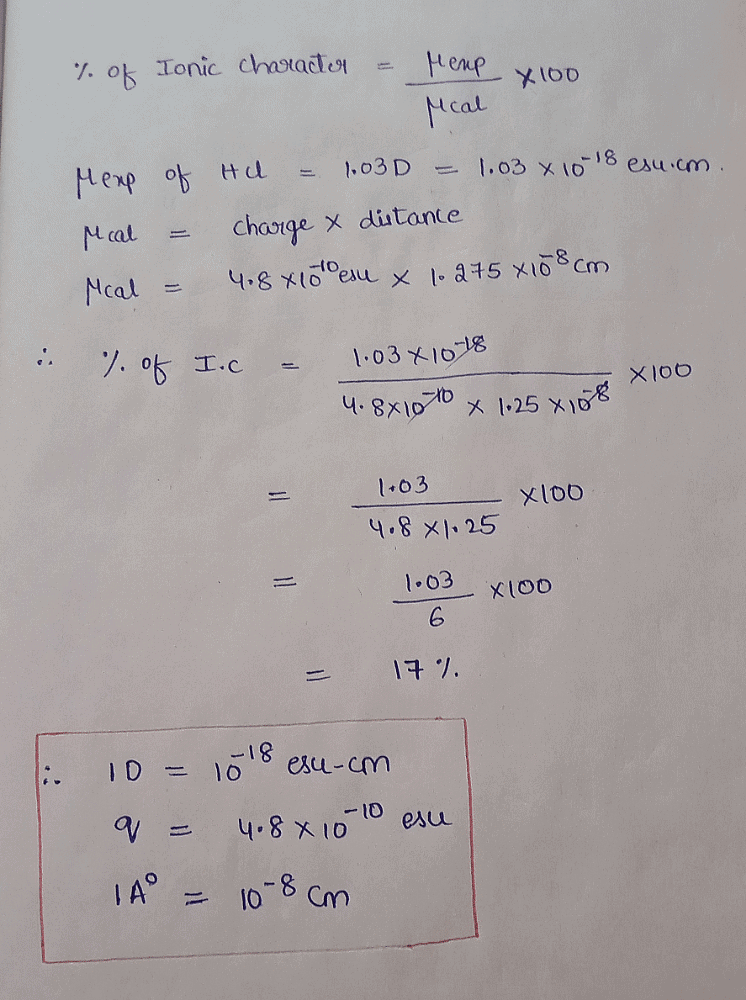 % of Ionic character = μexp / μcal ×100
μexp of HCl = 1.03D = 1.03 × 10⁻¹⁸ esu.cm.
μcal = charge × distance
μcal = 4.8 ×10⁻¹⁰ esu × 1.275 ×10⁻⁸ cm
∴ % of I.C = 1.03 × 10⁻¹⁸ / 4.8×10⁻¹⁰ × 1.25 ×10⁻⁸ ×100
= 1.03 / 4.8 ×1.25 ×100
= 1.03 / 6 ×100
= 17 %.
∴ 1D = 10⁻¹⁸ esu-cm
q = 4.8 × 10⁻¹⁰ esu
1A° = 10⁻⁸ cm